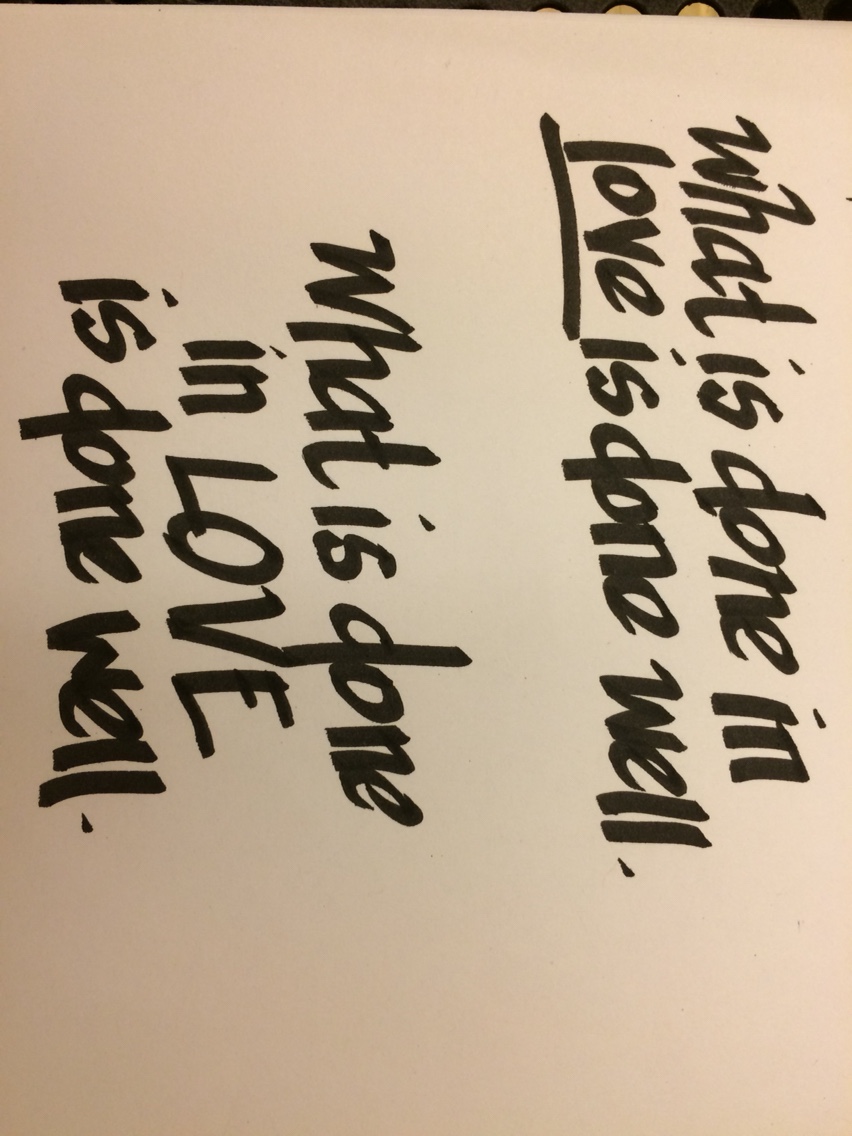 What is done in
love is done well.
What is done
in LOVE
is done well.